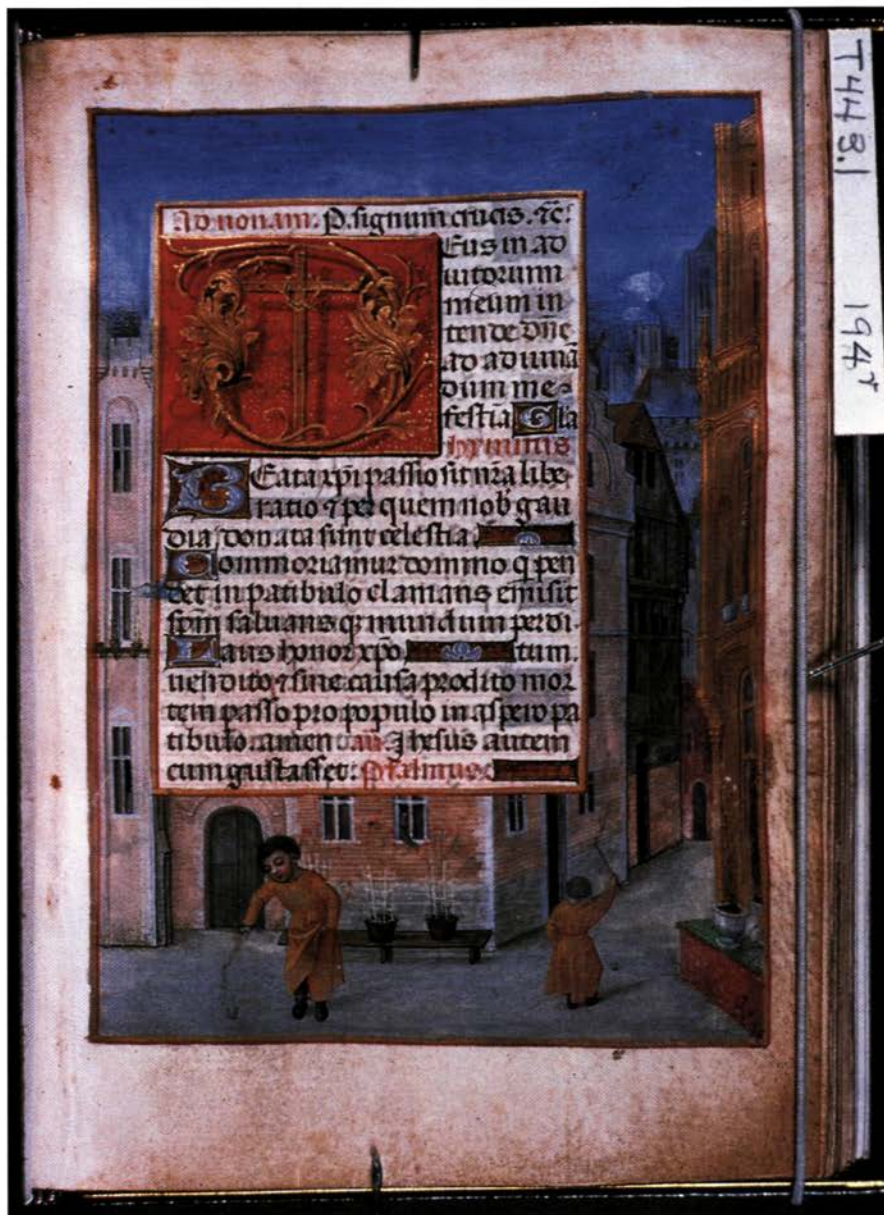 Ad nonam. P. signum crucis. ⁊c̃.
Eus in ad
iutorium
meum in
tende dn̄e
ad adiuuā
dum me
festīa Gla
hymnus
Eata xp̄i passio sit nr̄a libe
ratio ⁊ per quem nob̄ gau
dia donata sunt celestia.
Commoriamur domino q pen
det in patibulo clamans emisit
sp̄m saluans q; mundum perdi-
Laus honor xp̄o tum.
uendito ⁊ sine causa prodito mor
tem passo pro populo in aspero pa
tibulo. amen añ. Jhesus autem
cum gustasset: Psalmus.
T448.1
194r